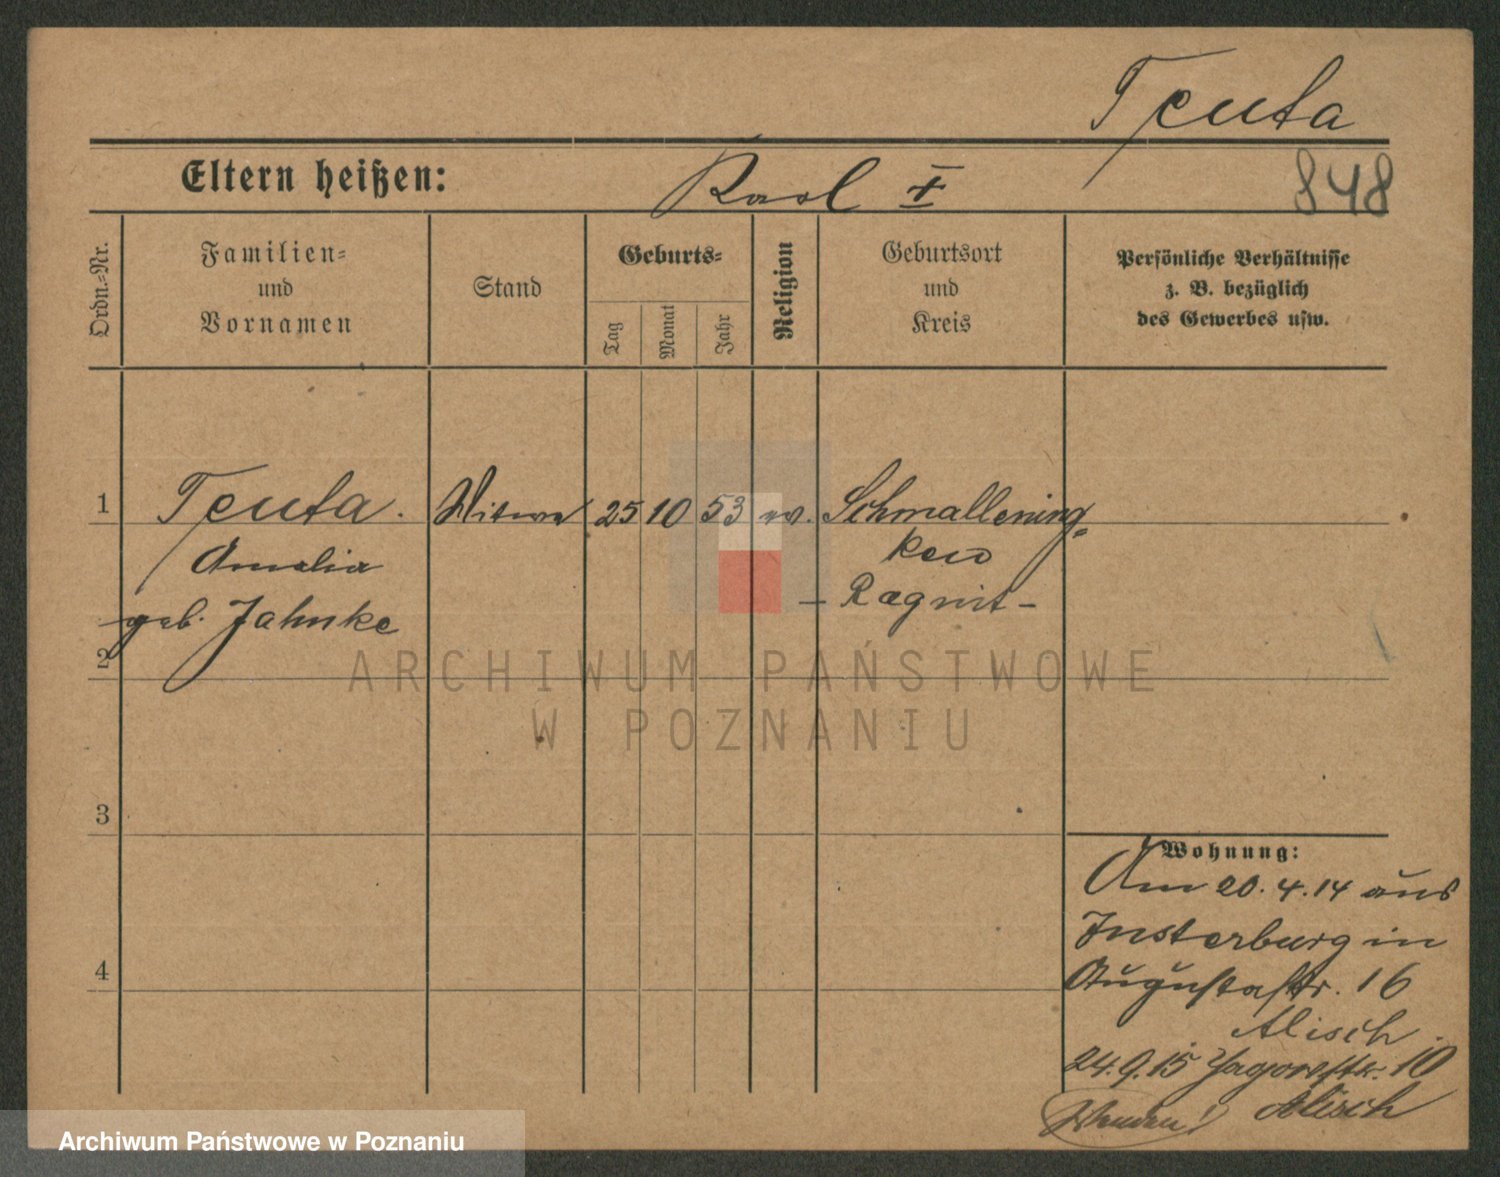 Teufa
Eltern heißen: Karl †
848
Ordn.=Nr.
Familien=
und
Vornamen
Stand
Geburts=
Tag
Monat
Jahr
Religion
Geburtsort
und
Kreis
Persönliche Verhältnisse
z. B. bezüglich
des Gewerbes usw.
1 Teufa. Witwe 25 10 53 ev. Schmallening=
Amalia ken
geb. Jahnke - Ragnit -
2
3
4
Wohnung:
Am 20.4.14 aus
Insterburg in
Augustastr. 16
Alisch
24.9.15 Jagowstr. 10
Alisch
Wenden!
ARCHIWUM PAŃSTWOWE
W POZNANIU
Archiwum Państwowe w Poznaniu